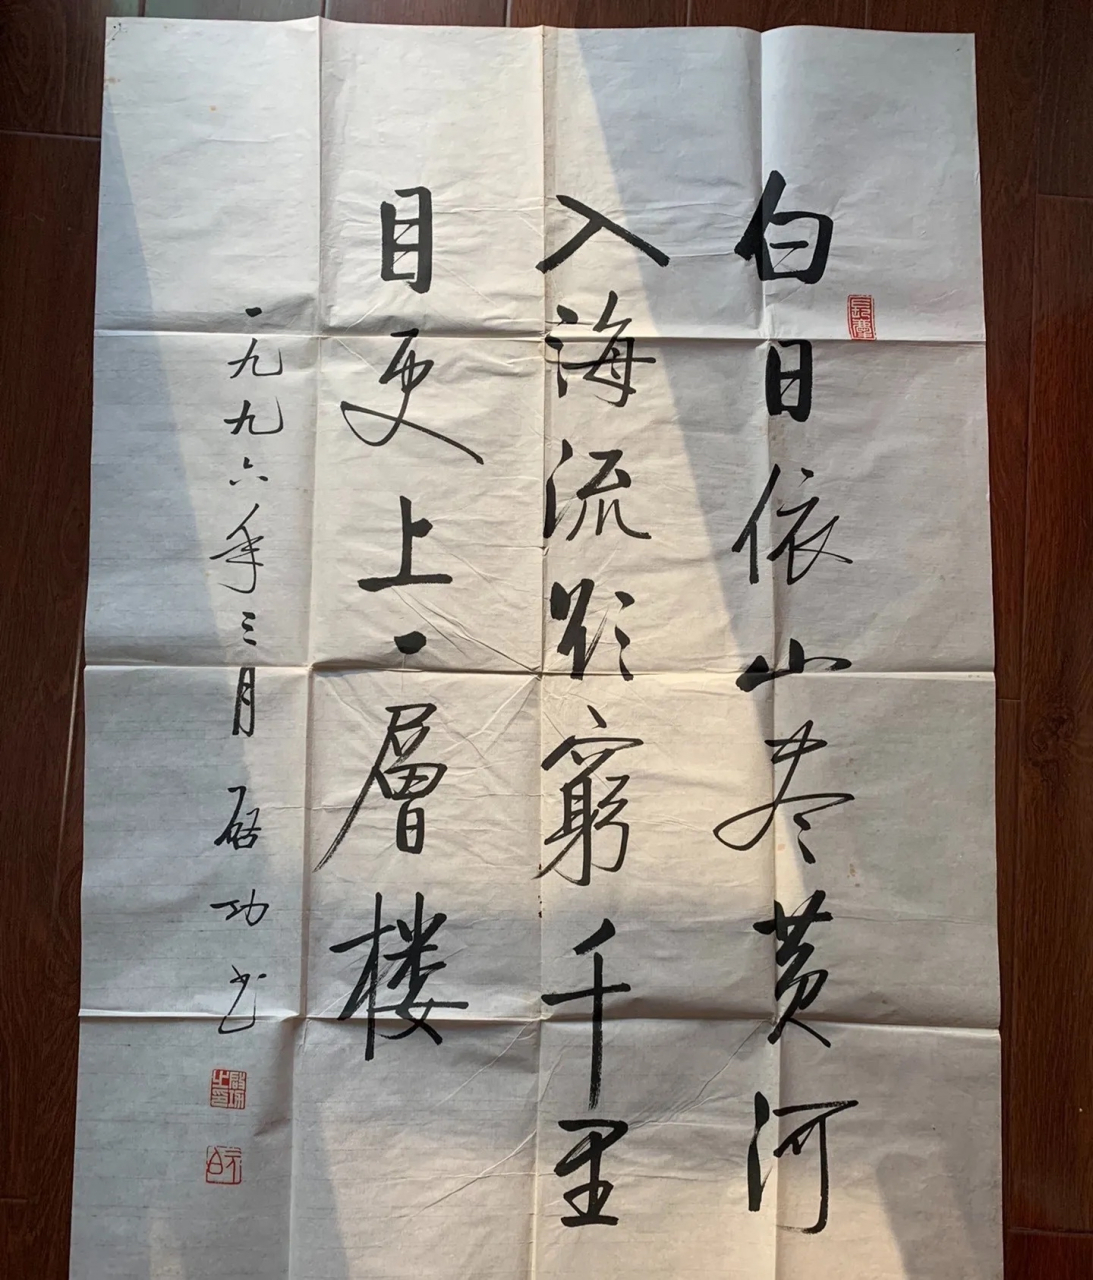 白日依山尽黄河
入海流欲窮千里
目更上一層楼
一九九六年三月启功书
啟功之印
元白